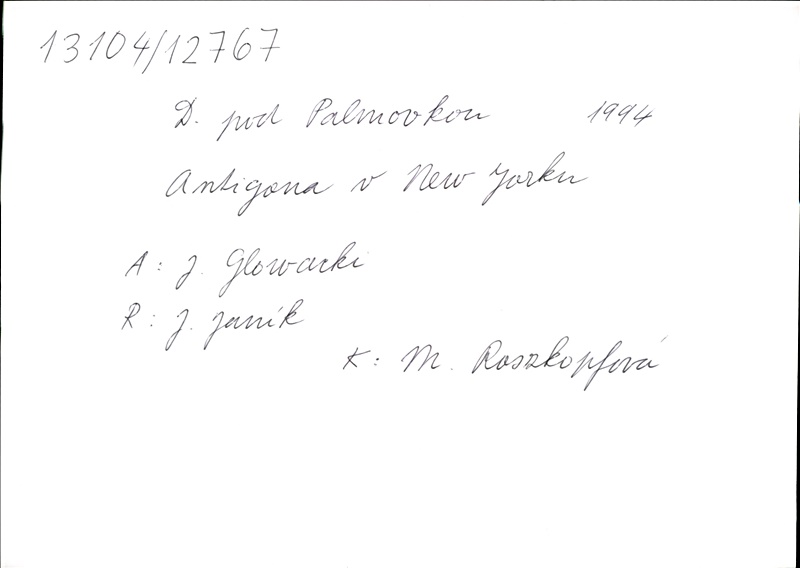 13104/12767
D. pod Palmovkou 1994
Antigona v New Yorku
A: J. Glowacki
R: J. Janík
K: M. Roszkopfová